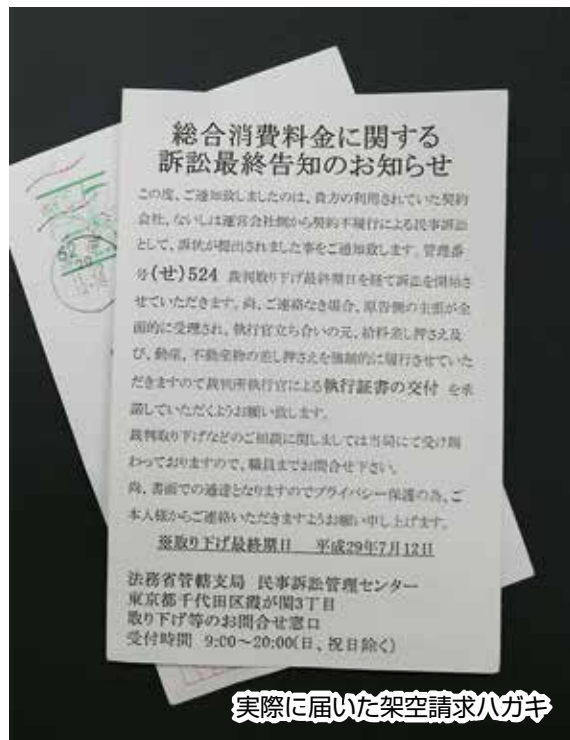 総合消費料金に関する
訴訟最終告知のお知らせ
この度、ご通知致しましたのは、貴方の利用されていた契約
会社、ないしは運営会社側から契約不履行による民事訴訟
として、訴状が提出されました事をご通知致します。管理番
号(せ)524 裁判取り下げ最終期日を経て訴訟を開始さ
せていただきます。尚、ご連絡なき場合、原告側の主張が全
面的に受理され、執行官立ち合いの元、給料差し押さえ及
び、動産、不動産物の差し押さえを強制的に履行させていた
だきますので裁判所執行官による執行証書の交付 を承
諾していただくようお願い致します。
裁判取り下げなどのご相談に関しましては当局にて受け賜
わっておりますので、職員までお問合せ下さい。
尚、書面での通達となりますのでプライバシー保護の為、ご
本人様からご連絡いただきますようお願い申し上げます。
※取り下げ最終期日 平成29年7月12日
法務省管轄支局 民事訴訟管理センター
東京都千代田区霞が関3丁目
取り下げ等のお問合せ窓口
受付時間 9:00～20:00(日、祝日除く)
実際に届いた架空請求ハガキ